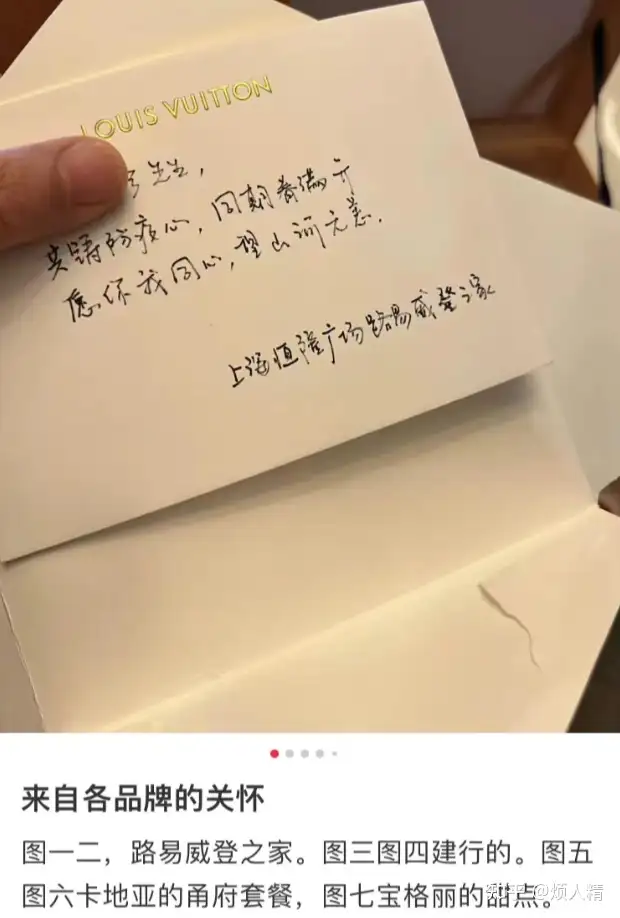 LOUIS VUITTON
先生，
共铸防疫心，同期春满开
愿你我同心，望山河无恙．
上海恒隆广场路易威登之家
来自各品牌的关怀
图一二，路易威登之家。图三图四建行的。图五
图六卡地亚的甬府套餐，图七宝格丽的甜点。
知乎 @烦人精